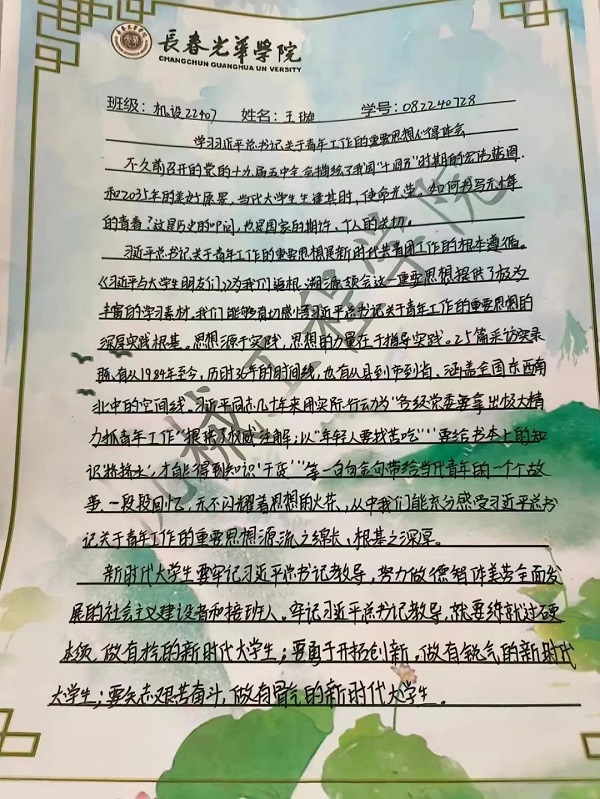 長春光华學院
CHANGCHUN GUANGHUA UNIVERSITY
班级：机设22407 姓名：王璇 学号：082240728
学习习近平总书记关于青年工作的重要思想心得体会
不久前召开的党的十九届五中全会描绘了我国“十四五”时期的宏伟蓝图
和2035年的美好愿景，当代大学生生逢其时，使命光荣。如何书写无悔
的青春？这是历史的叩问，也是国家的期许、个人的关切。
习近平总书记关于青年工作的重要思想是新时代共青团工作的根本遵循。
《习近平与大学生朋友们》为我们追根溯源领会这一重要思想提供了极为
丰富的学习素材。我们能够真切感悟习近平总书记关于青年工作的重要思想的
深厚实践根基。思想源于实践，思想的力量在于指导实践。25篇采访实录
既有从1984年至今，历时36年的时间线，也有从县到市到省、涵盖全国东西南
北中的空间线。习近平同志几十年来用实际行动为“各级党委要拿出极大精
力抓青年工作”提供了权威注解；以“年轻人要找苦吃”“要给书本上的知
识挤挤水，才能得到知识‘干货’”等一句句金句带给当代青年的一个个故
事、一段段回忆，无不闪耀着思想的火花，从中我们能充分感受习近平总书
记关于青年工作的重要思想源流之绵长、根基之深厚。
新时代大学生要牢记习近平总书记教导，努力做德智体美劳全面发
展的社会主义建设者和接班人。牢记习近平总书记教导，就要练就过硬
本领，做有为的新时代大学生；要勇于开拓创新，做有锐气的新时代
大学生；要矢志艰苦奋斗，做有骨气的新时代大学生。
机械工程学院